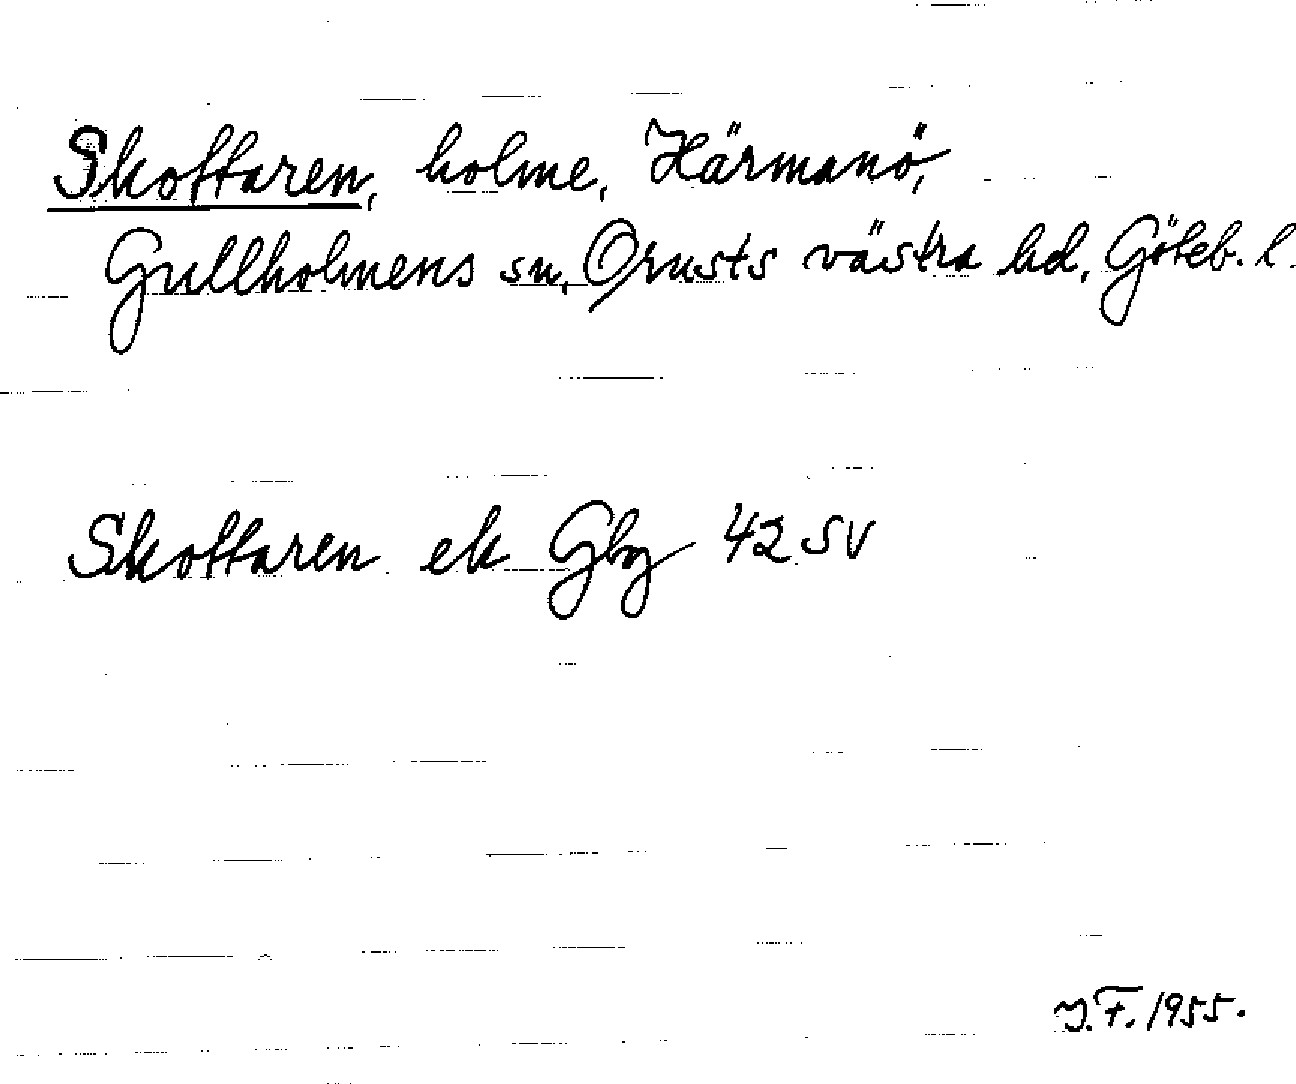 Skottaren, holme, Härmanö,
Gullholmens sn, Orusts västra hd, Göteb. l.
Skottaren ek Gbg 42 SV
J.F. 1955.